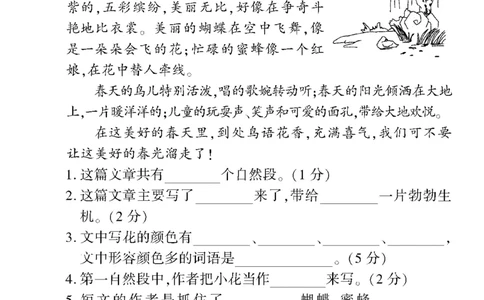 紫的,五彩缤纷,美丽无比,好像在争奇斗
艳地比衣裳。美丽的蝴蝶在空中飞舞,像
是一朵朵会飞的花;忙碌的蜜蜂像一个红
娘,在花中替人牵线。
春天的鸟儿特别活泼,唱的歌婉转动听;春天的阳光倾洒在大地
上,一片暖洋洋的;儿童的玩耍声、笑声和可爱的面孔,带给大地欢悦。
在这美好的春天里,到处鸟语花香,充满喜气,我们可不要
让这美好的春光溜走了!
1.这篇文章共有________个自然段。(1分)
2.这篇文章主要写了________来了,带给________一片勃勃生
机。(2分)
3.文中写花的颜色有________、________、________、________,
文中形容颜色多的词语是______________。(5分)
4.第一自然段中,作者把小花当作________来写。(2分)
5.短文的作者是抓住了________、蝴蝶、蜜蜂、